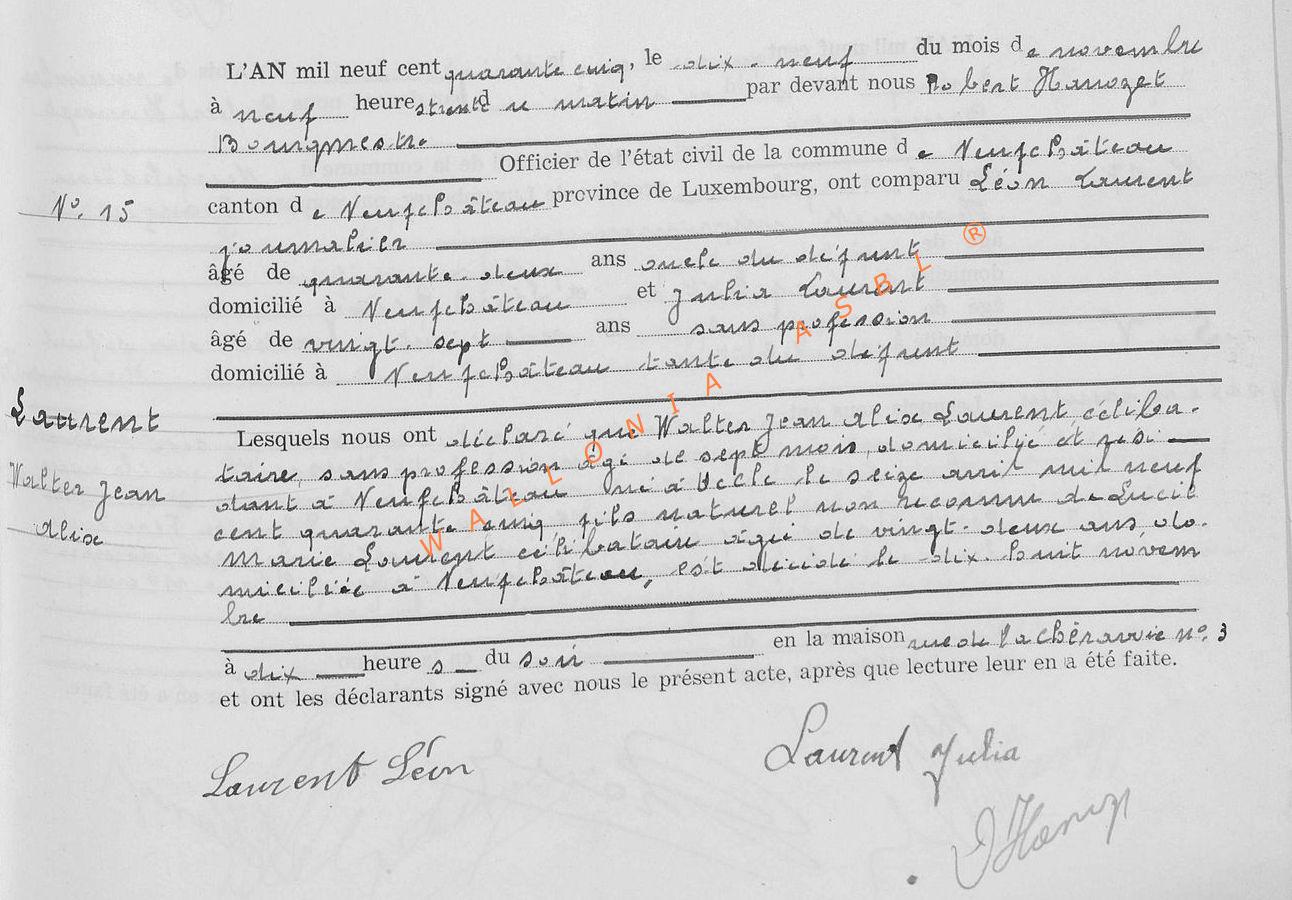 L'AN mil neuf cent quarante cinq, le dix-neuf du mois de novembre
à neuf heures trente du matin par devant nous Robert Hanozet
Bourgmestre
Officier de l'état civil de la commune de Neufchâteau
N°. 15
canton de Neufchâteau province de Luxembourg, ont comparu Léon Laurent
journalier
âgé de quarante-deux ans oncle du défunt
domicilié à Neufchâteau et Julia Laurent
âgé de vingt-sept ans sans profession
domicilié à Neufchâteau tante du défunt
Laurent
Walter Jean
Alix
Lesquels nous ont déclaré que Walter Jean Alix Laurent céliba-
taire, sans profession âgé de sept mois, domicilié et rési-
dant à Neufchâteau né à le seize avril mil neuf
cent quarante cinq fils naturel non reconnu de Lucie
Marie Laurent célibataire âgée de vingt-deux ans do-
miciliée à Neufchâteau, est décédé le dix-huit novem
bre
à dix heures du soir en la maison rue de la n°. 3
et ont les déclarants signé avec nous le présent acte, après que lecture leur en a été faite.
Laurent Léon
Laurent Julia
WALLONIA ASBL ®